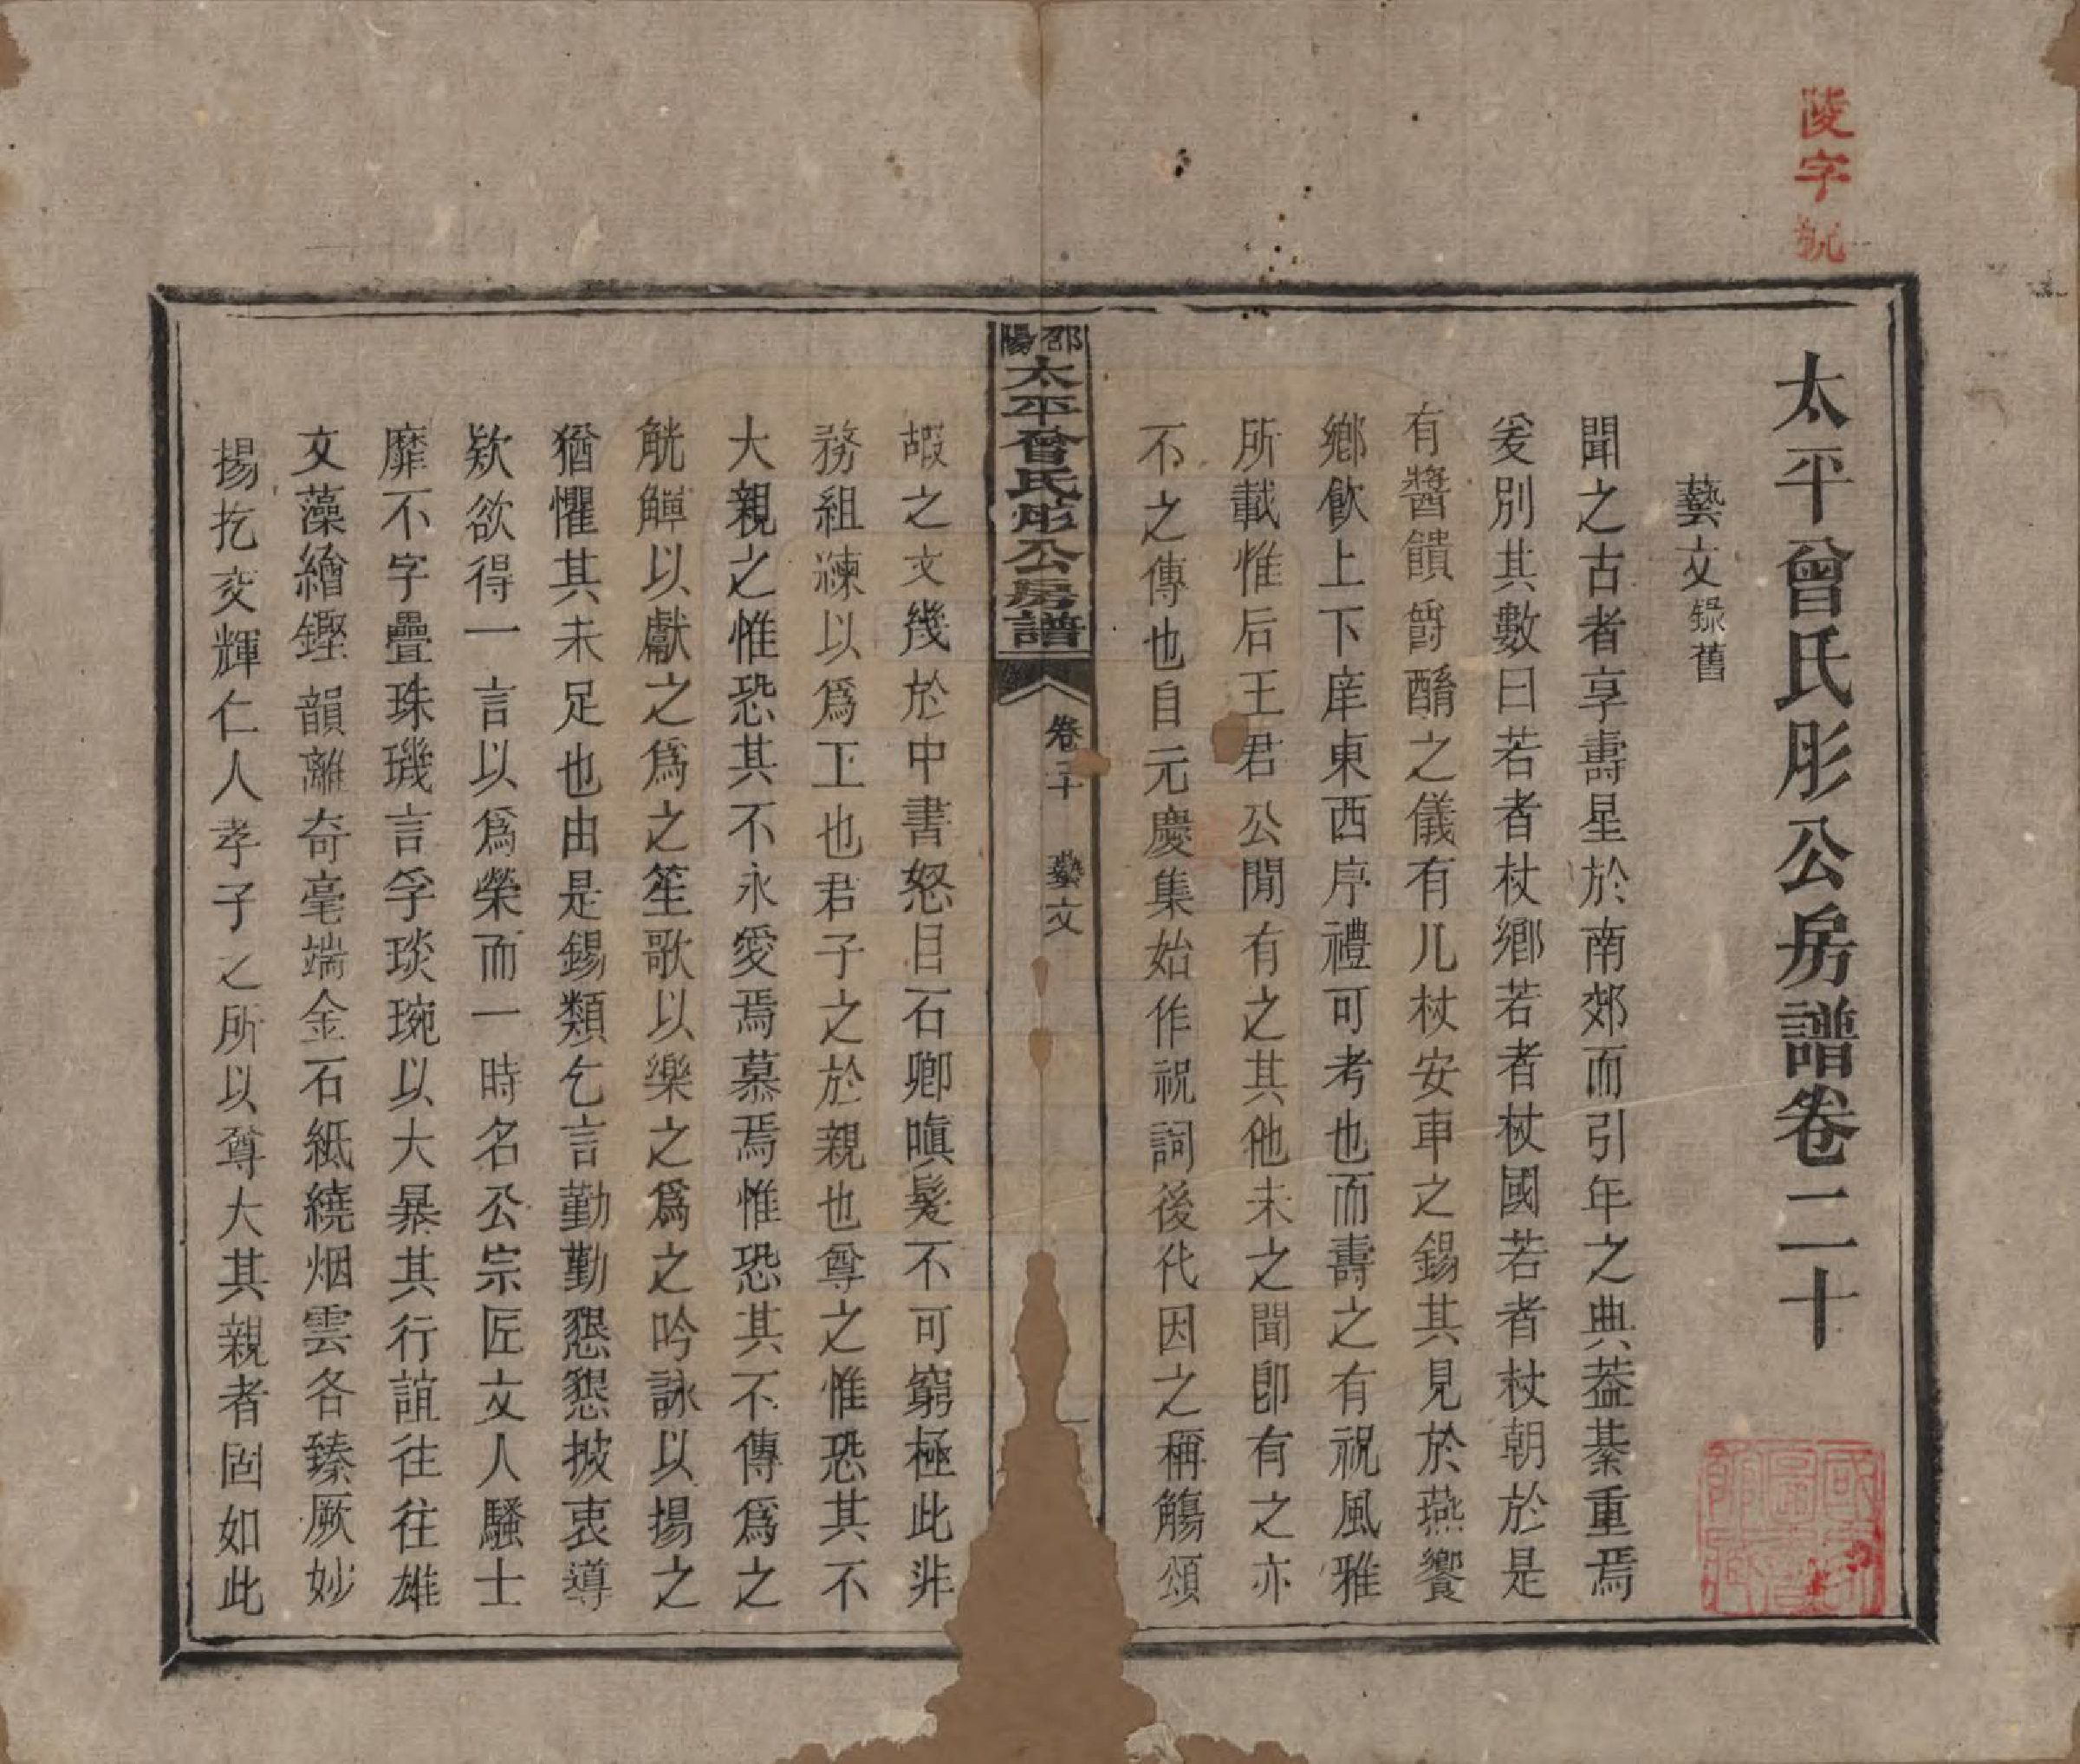 陵字號
太平曾氏彤公房譜卷二十
藝文錄舊
聞之古者享壽星於南郊而引年之典葢綦重焉
爰別其數曰若者杖鄉若者杖國若者杖朝於是
有醬饋爵酳之儀有几杖安車之錫其見於燕饗
鄉飲上下庠東西序禮可考也而壽之有祝風雅
所載惟后王君公閒有之其他未之聞卽有之亦
不之傳也自元慶集始作祝詞後代因之稱觴頌
邵陽太平曾氏彤公房譜
卷二十 藝文 一
嘏之文幾於中書怒目石卿嗔髮不可窮極此非
務組湅以爲工也君子之於親也尊之惟恐其不
大親之惟恐其不永愛焉慕焉惟恐其不傳爲之
觥觶以獻之爲之笙歌以樂之爲之吟詠以揚之
猶懼其未足也由是錫類乞言勤勤懇懇披衷導
欵欲得一言以爲榮而一時名公宗匠文人騷士
靡不字疊珠璣言孚琰琬以大暴其行誼往往雄
文藻繪鏗韻離奇毫端金石紙繞烟雲各臻厥妙
揚扢交輝仁人孝子之所以尊大其親者固如此